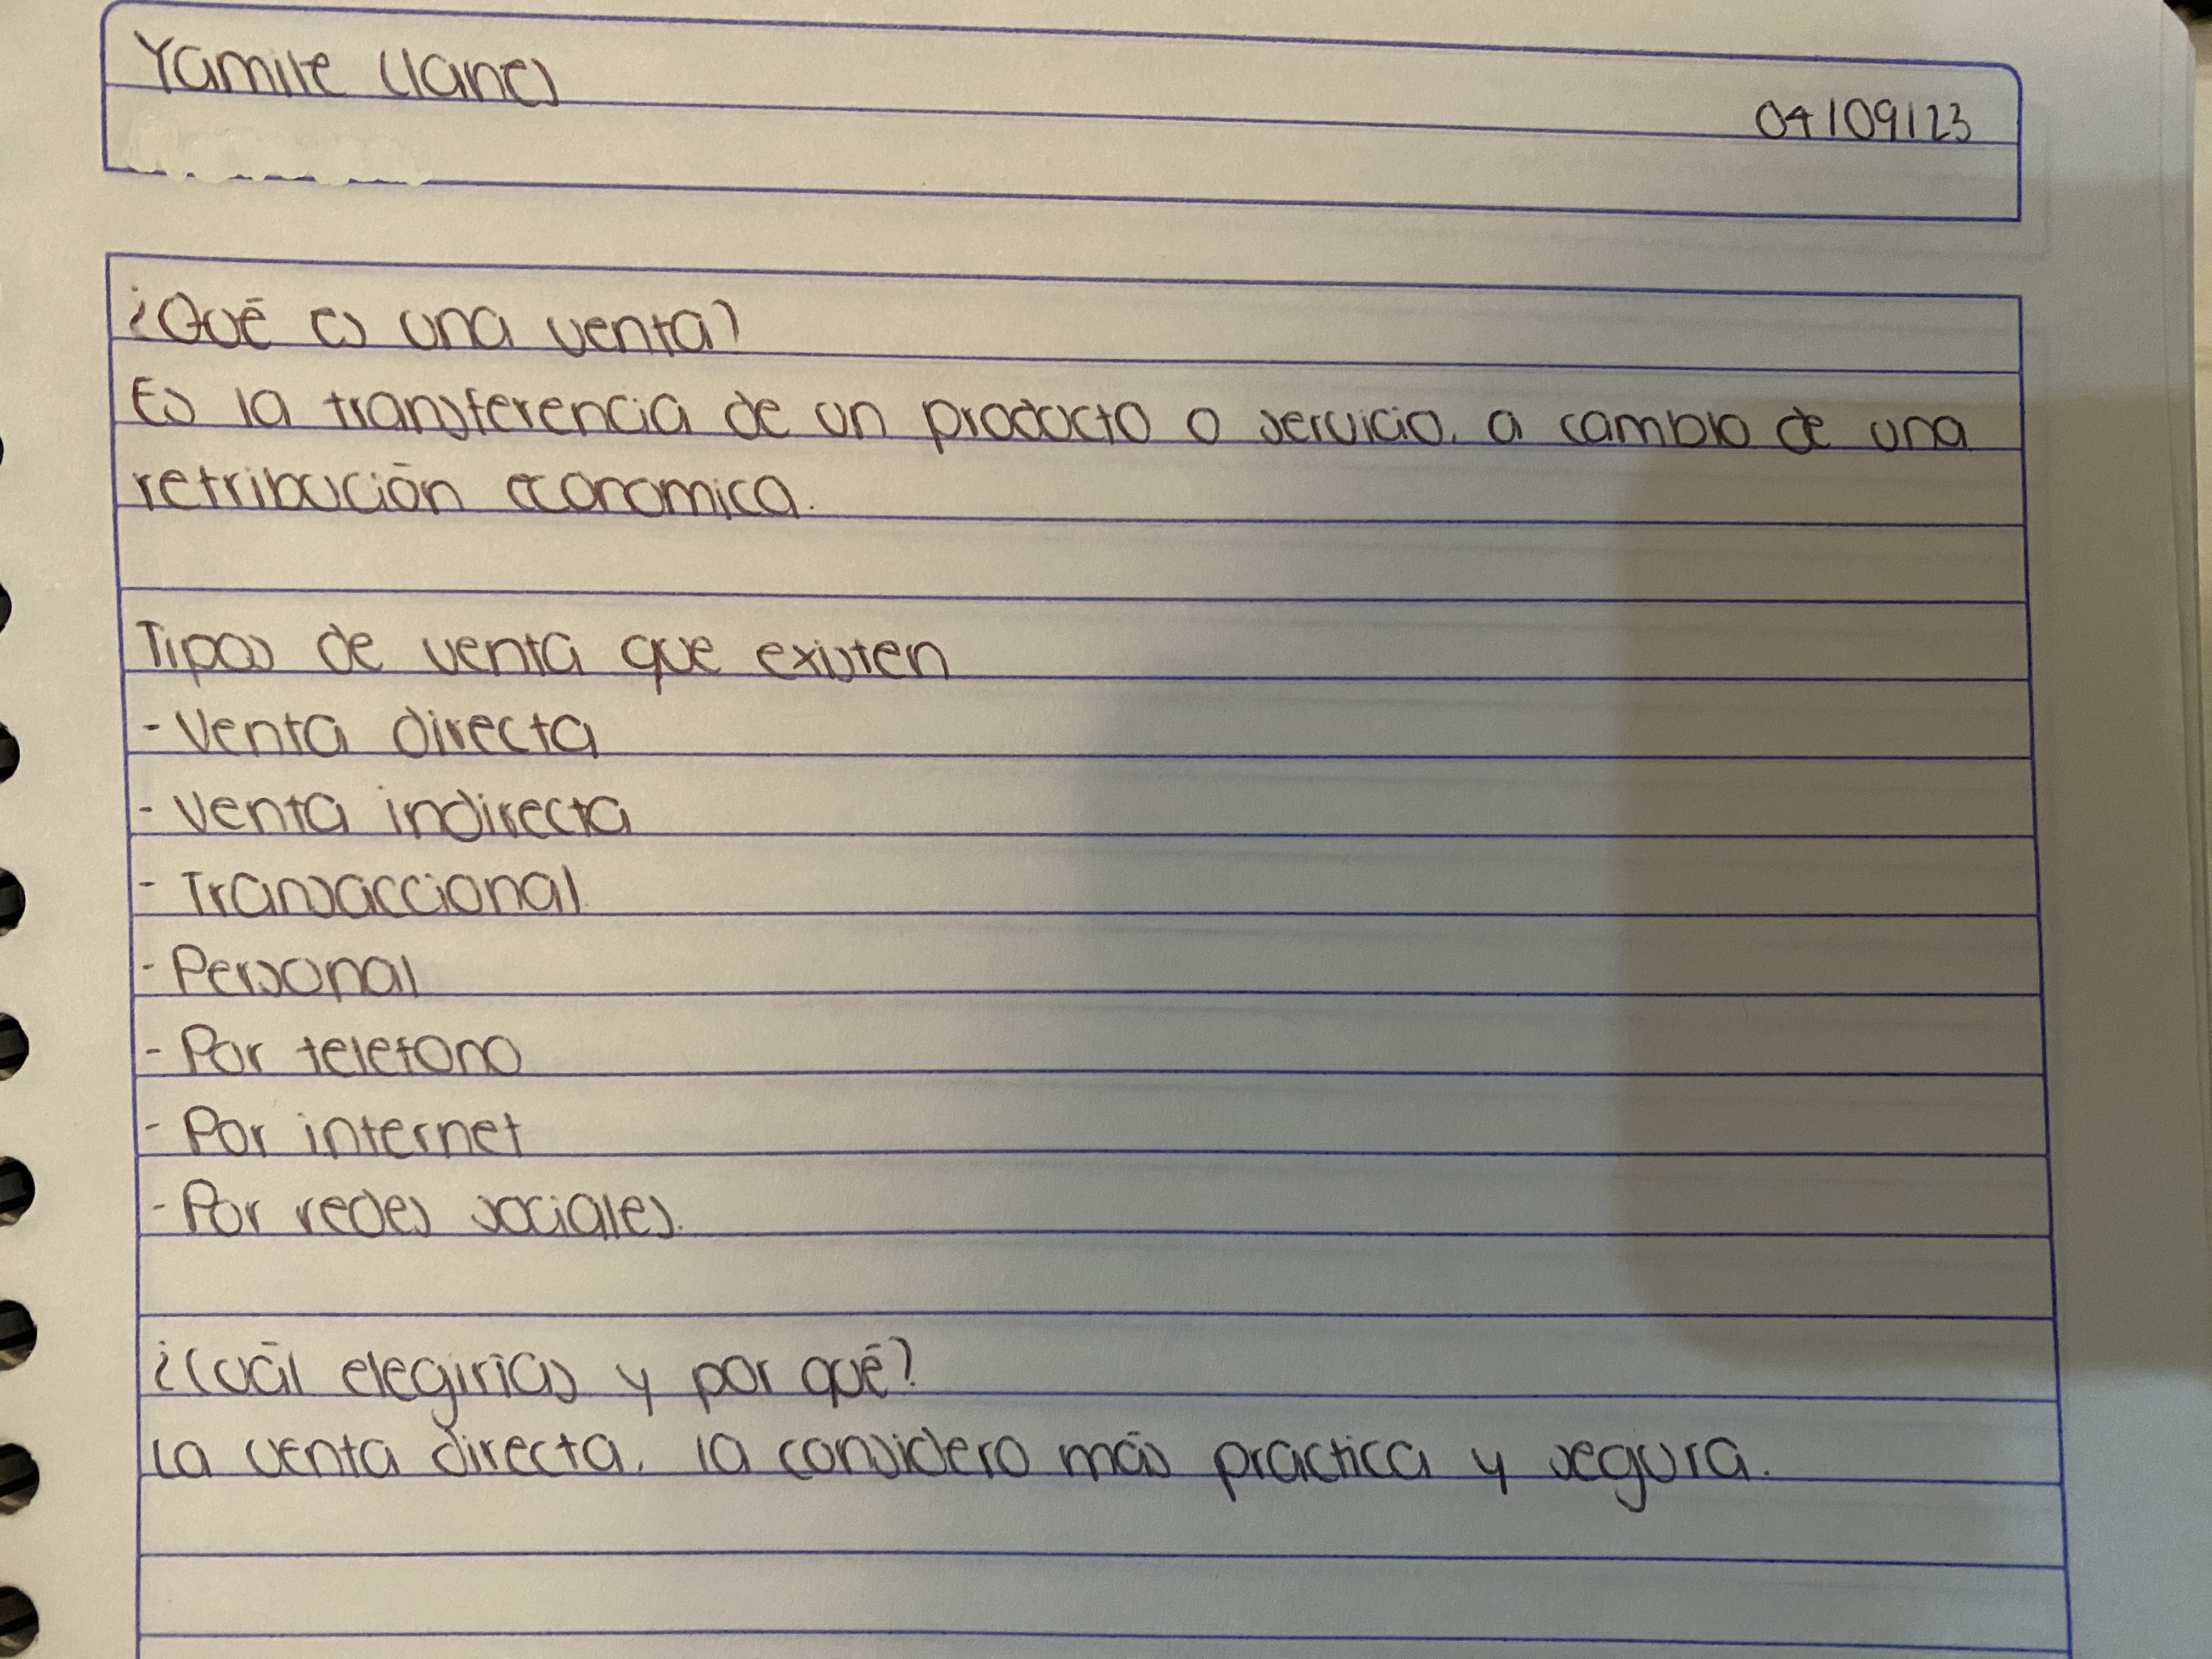 Yamile Llanes
04/09/23
¿Qué es una venta?
Es la transferencia de un producto o servicio, a cambio de una
retribución economica.
Tipos de venta que existen
- Venta directa
- Venta indirecta
- Transaccional
- Personal
- Por telefono
- Por internet
- Por redes sociales.
¿Cuál elegirías y por qué?
La venta directa, la considero más practica y segura.